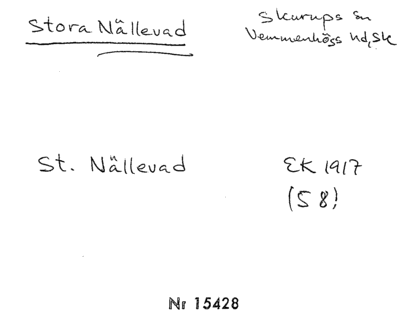 Stora Nällevad
Skurups sn
Vemmenhögs hd, Sk
St. Nällevad
EK 1917
(S 8)
Nr 15428